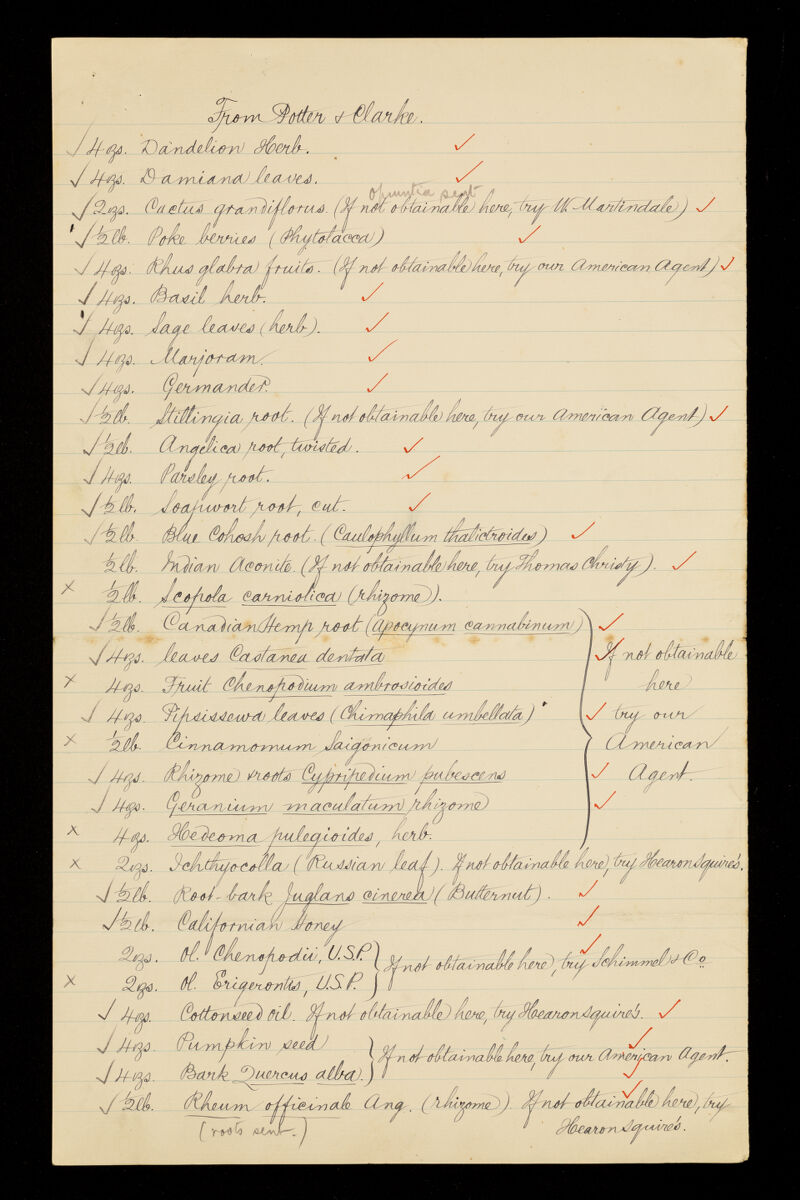 From Potter & Clarke.
√ 4 ozs. Dandelion Herb. ✓
√ 4 ozs. Damiana leaves. ✓
opuntia sent
√ 2 ozs. Cactus grandiflorus. (If not obtainable here, try W. Martindale) ✓
√ ½ lb. Poke berries (Phytolacca) ✓
√ 4 ozs. Rhus glabra fruits. (If not obtainable here, try our American Agent) ✓
√ 4 ozs. Basil herb. ✓
√ 4 ozs. Sage leaves (herb). ✓
√ 4 ozs. Marjoram. ✓
√ 4 ozs. Germander. ✓
√ ½ lb. Stillingia root. (If not obtainable here, try our American Agent) ✓
√ ½ lb. Angelica root, twisted. ✓
√ 4 ozs. Parsley root. ✓
√ ½ lb. Soapwort root, cut. ✓
√ ½ lb. Blue Cohosh root. (Caulophyllum thalictroides) ✓
½ lb. Indian Aconite. (If not obtainable here, try Thomas Christy). ✓
x ½ lb. Scopola carniolica (rhizome).
√ ½ lb. Canadian Hemp root (Apocynum cannabinum) ✓
√ 4 ozs. leaves Castanea dentata ✓ If not obtainable
x 4 ozs. Fruit Chenopodium ambrosioides here
√ 4 ozs. Pipsissewa leaves (Chimaphila umbellata) ✓ try our
x ½ lb. Cinnamomum Saigonicum American
√ 4 ozs. Rhizome & roots Cypripedium pubescens ✓ Agent.
√ 4 ozs. Geranium maculatum rhizome ✓
x 4 ozs. Hedeoma pulegioides, herb.
x 2 ozs. Ichthyocolla (Russian leaf). If not obtainable here, try Hearon Squire's.
√ ½ lb. Root-bark Juglans cinerea (Butternut). ✓
√ ½ lb. Californian Honey ✓
2 ozs. Ol. Chenopodii, U.S.P. ✓ If not obtainable here, try Schimmel & Co.
x 2 ozs. Ol. Erigerontis, U.S.P.
√ 4 ozs. Cottonseed oil. If not obtainable here, try Hearon Squire's. ✓
√ 4 ozs. Pumpkin seed ✓ If not obtainable here, try our American Agent.
√ 4 ozs. Bark Quercus alba. ✓
√ ½ lb. Rheum officinale Ang. (rhizome). If not obtainable here, try ✓
(roots sent.) Hearon Squire's.